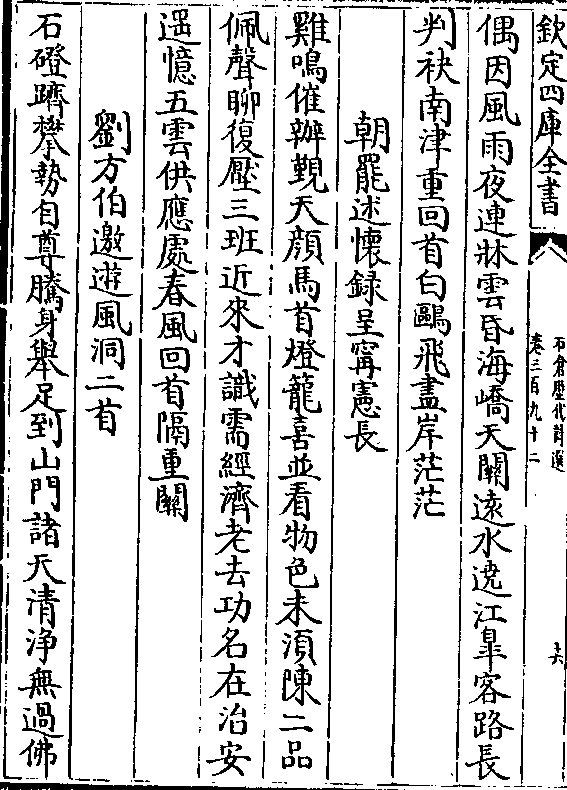 欽定四庫全書
石倉歷代詩選
卷三百九十二
偶因風雨夜連牀雲昏海嶠天關遠水遶江臯客路長
判袂南津重回首白鷗飛盡岸茫茫
朝罷述懷録呈甯憲長
雞鳴催辦覲天顔馬首燈籠喜並看物色未須陳二品
佩聲聊復壓三班近來才識需經濟老去功名在治安
遥憶五雲供應處春風回首隔重關
劉方伯邀遊風洞二首
石磴躋攀勢自尊騰身舉足到山門諸天清浄無過佛